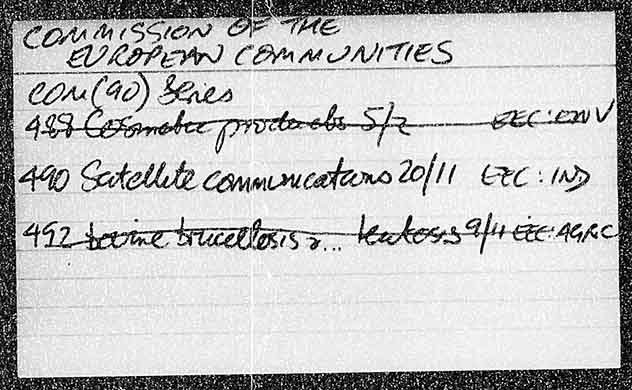 COMMISSION OF THE
EUROPEAN COMMUNITIES
COM(90) Series
488 Cosmetic products 5/2 EEC: ENV
490 Satellite communications 20/11 EEC: IND
492 bovine brucellosis & ... leukosis 9/11 EEC: AGRIC